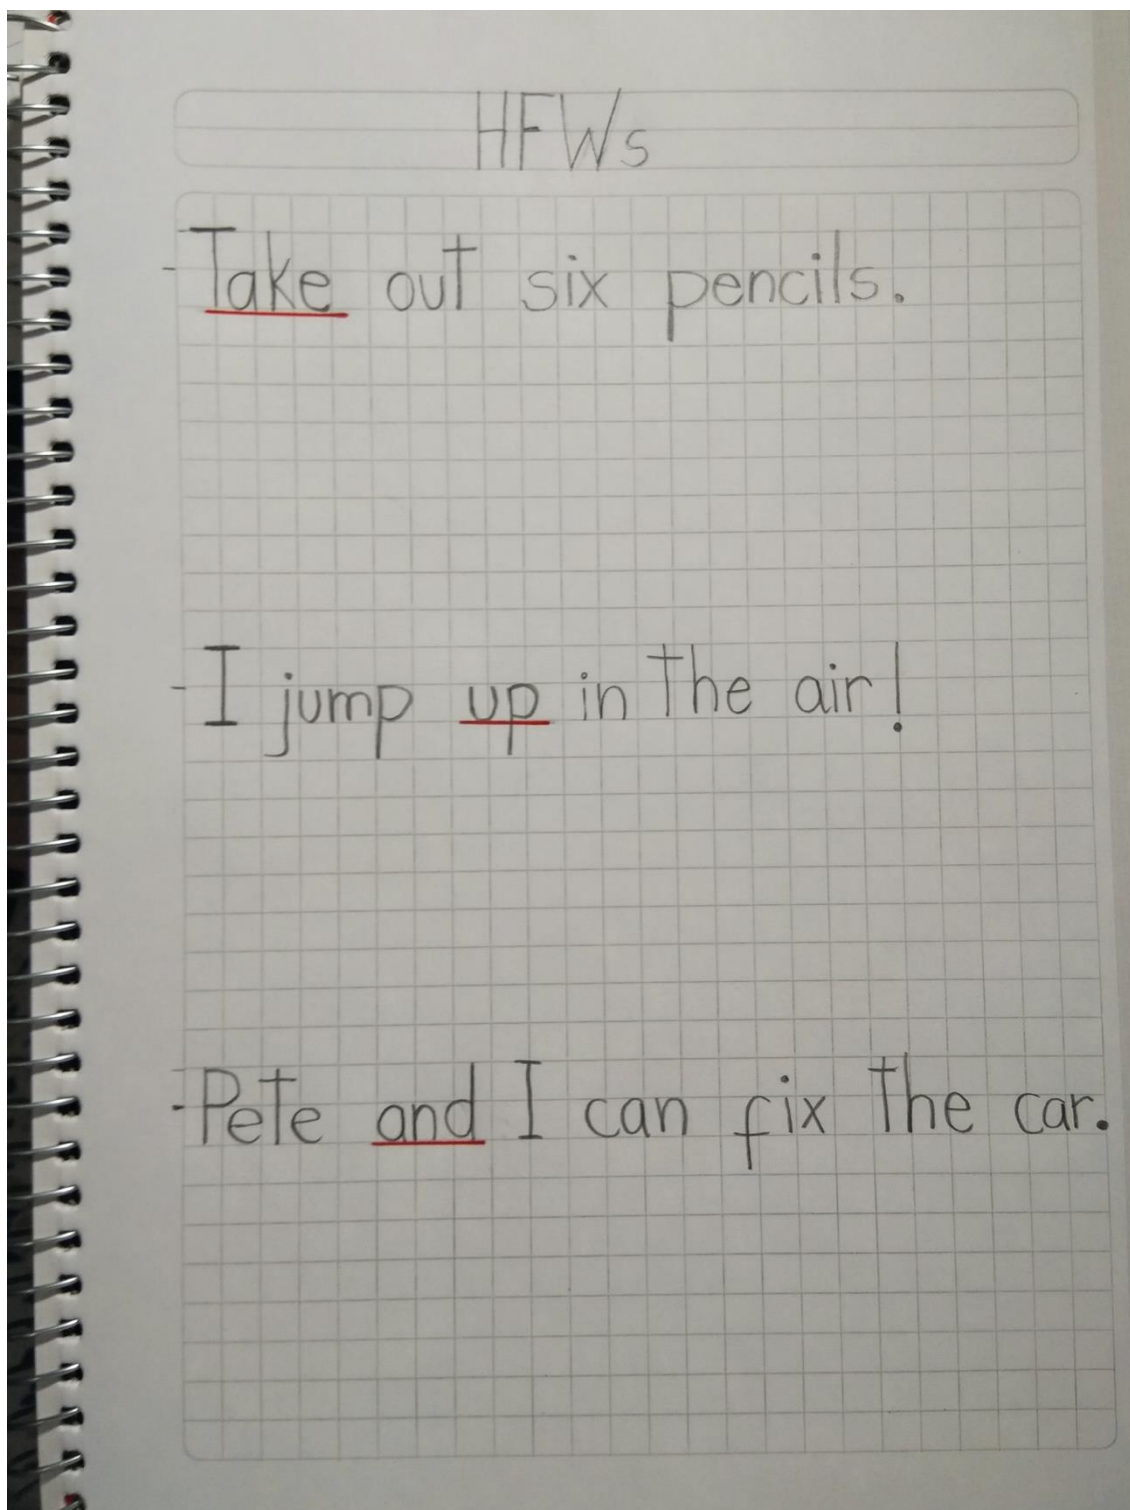 HFWs
- Take out six pencils.
- I jump up in the air!
- Pete and I can fix the car.